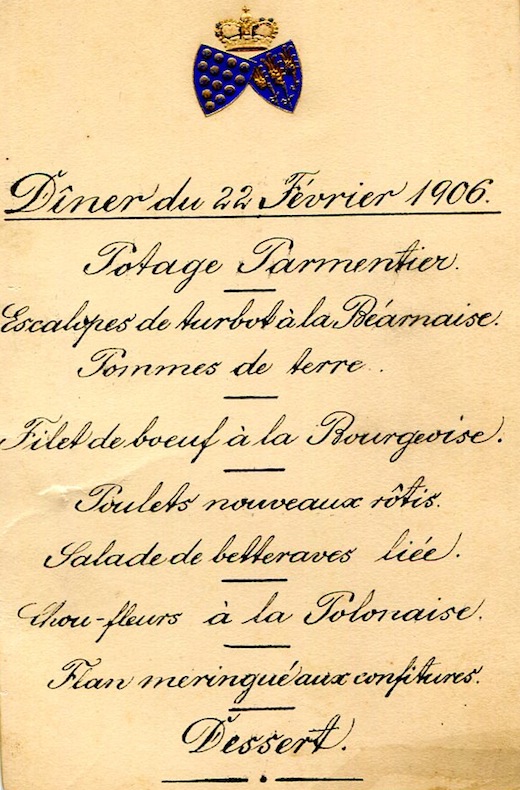 Dîner du 22 Février 1906.
Potage Parmentier.
Escalopes de turbot à la Béarnaise.
Pommes de terre.
Filet de boeuf à la Bourgeoise.
Poulets nouveaux rôtis.
Salade de betteraves liée.
Chou-fleurs à la Polonaise.
Flan meringué aux confitures.
Dessert.